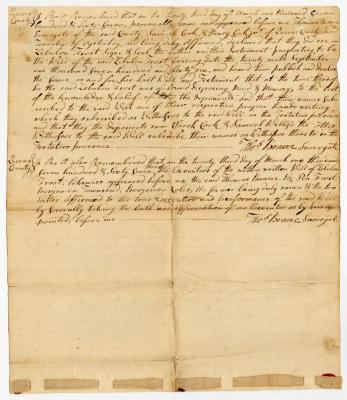 Be it Remembered that on the twenty third day of March one thousand Seven
hundred & forty Seven, personally came and appeared before me Thomas
Surrogate of the said County, Samuel & Henry
Township of Oysterbay, and being duly affirmed, declared that they did see
Zebulon Frost Sign & Seal the within written Instrument purporting to be
the Will of the said Zebulon Frost bearing date the twenty ninth September
one thousand Seven hundred and forty Six, and heard him publish and declare
the same for his last Will and Testament that at the time thereof
he the said Zebulon Frost was of Sound disposing Mind & Memory to the best
of the knowledge & belief of the deponents and that their names Subscribed
to the said Will are of their respective proper hands writing
which they subscribed as Witnesses to the said Will in the Testators presence
and that they the deponents saw & the other
Witnesses to the said Will subscribe their names as Witnesses thereto in the
Testators presence
Thos Surrogate
Queens
County
Be it also Remembered that on the twenty third day of March one thousand
Seven hundred & forty Seven, the Executors of the within written Will of Zebulon
Frost, likewise appeared before me the said Thomas Frost
Benjamin Townsend, Benjamin the former being duly sworn & the two
latter affirmed to the true Execution and performance of the said Will
by severally taking the Oath and affirmation of an Executor as by Law
appointed, before me
Thos Surrogate